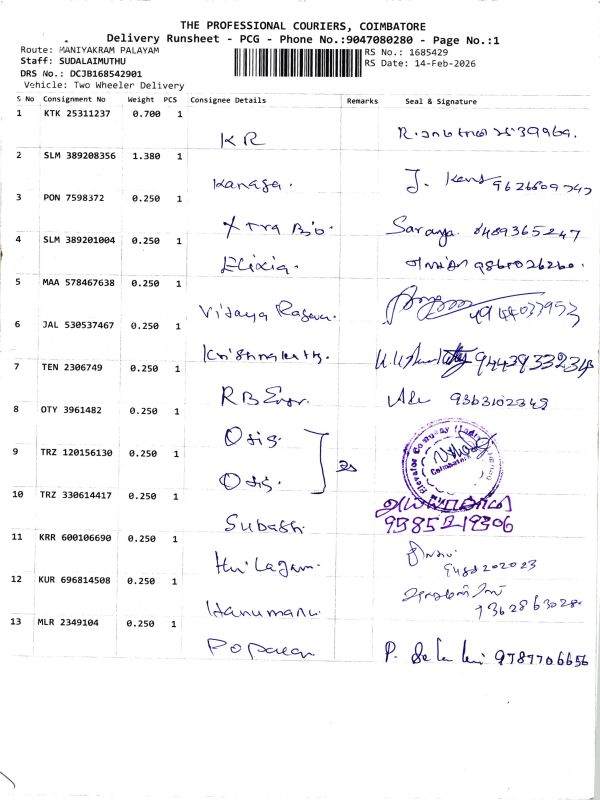 THE PROFESSIONAL COURIERS, COIMBATORE
Delivery Runsheet - PCG - Phone No.:9047080280 - Page No.:1
Route: MANIYAKRAM PALAYAM
RS No.: 1685429
Staff: SUDALAIMUTHU
RS Date: 14-Feb-2026
DRS No.: DCJB168542901
Vehicle: Two Wheeler Delivery
S No Consignment No Weight PCS Consignee Details Remarks Seal & Signature
1 KTK 25311237 0.700 1
KR
2 SLM 389208356 1.380 1
Kanaga. J.
3 PON 7598372 0.250 1
Xtra Bio. Saranya.
4 SLM 389201004 0.250 1
Elixia. 9861026260.
5 MAA 578467638 0.250 1
Vijaya
6 JAL 530537467 0.250 1
9443933234
7 TEN 2306749 0.250 1
RB Engr. 9363102349
8 OTY 3961482 0.250 1
Otis.
9 TRZ 120156130 0.250 1
Otis.
Elevator Company
Coimbatore
10 TRZ 330614417 0.250 1
Subash. 9585219306
11 KRR 600106690 0.250 1
12 KUR 696814508 0.250 1
13 MLR 2349104 0.250 1
P. 9787706656